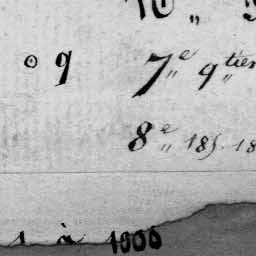 10 „
⊙ 9 7e „ 9 „ tier
8e „ 185. 18
1 à 1000